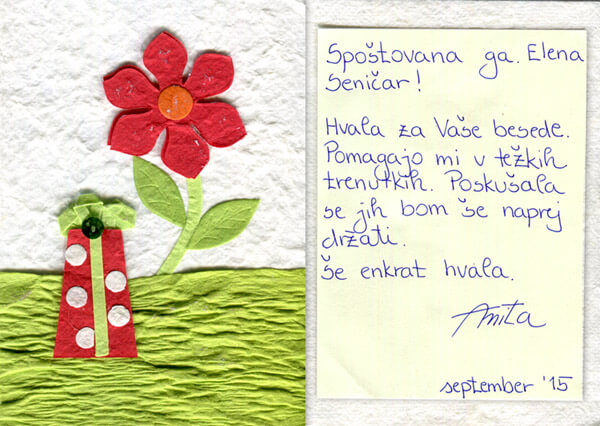 Spoštovana ga. Elena
Seničar!
Hvala za Vaše besede.
Pomagajo mi v težkih
trenutkih. Poskušala
se jih bom še naprej
držati.
Še enkrat hvala.
Anita
september '15